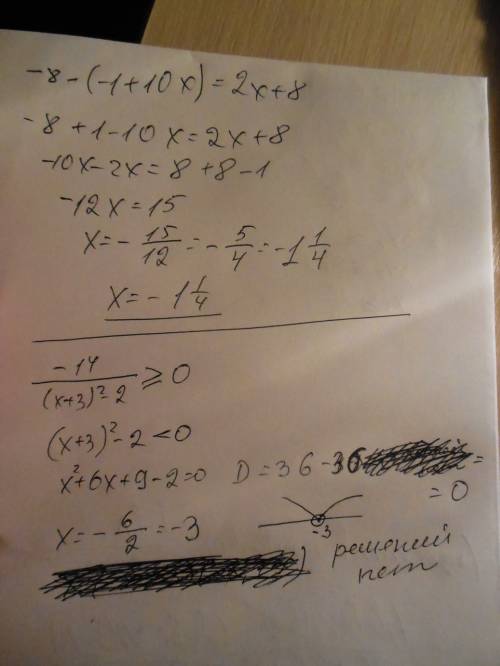 -8-(-1+10x)=2x+8
-8+1-10x=2x+8
-10x-2x=8+8-1
-12x=15
x=-15/12=-5/4=-1 1/4
x=-1 1/4
-14/((x+3)²-2)≥0
(x+3)²-2<0
x²+6x+9-2=0 D=36-36=
=0
x=-6/2=-3
-3
решений
нет